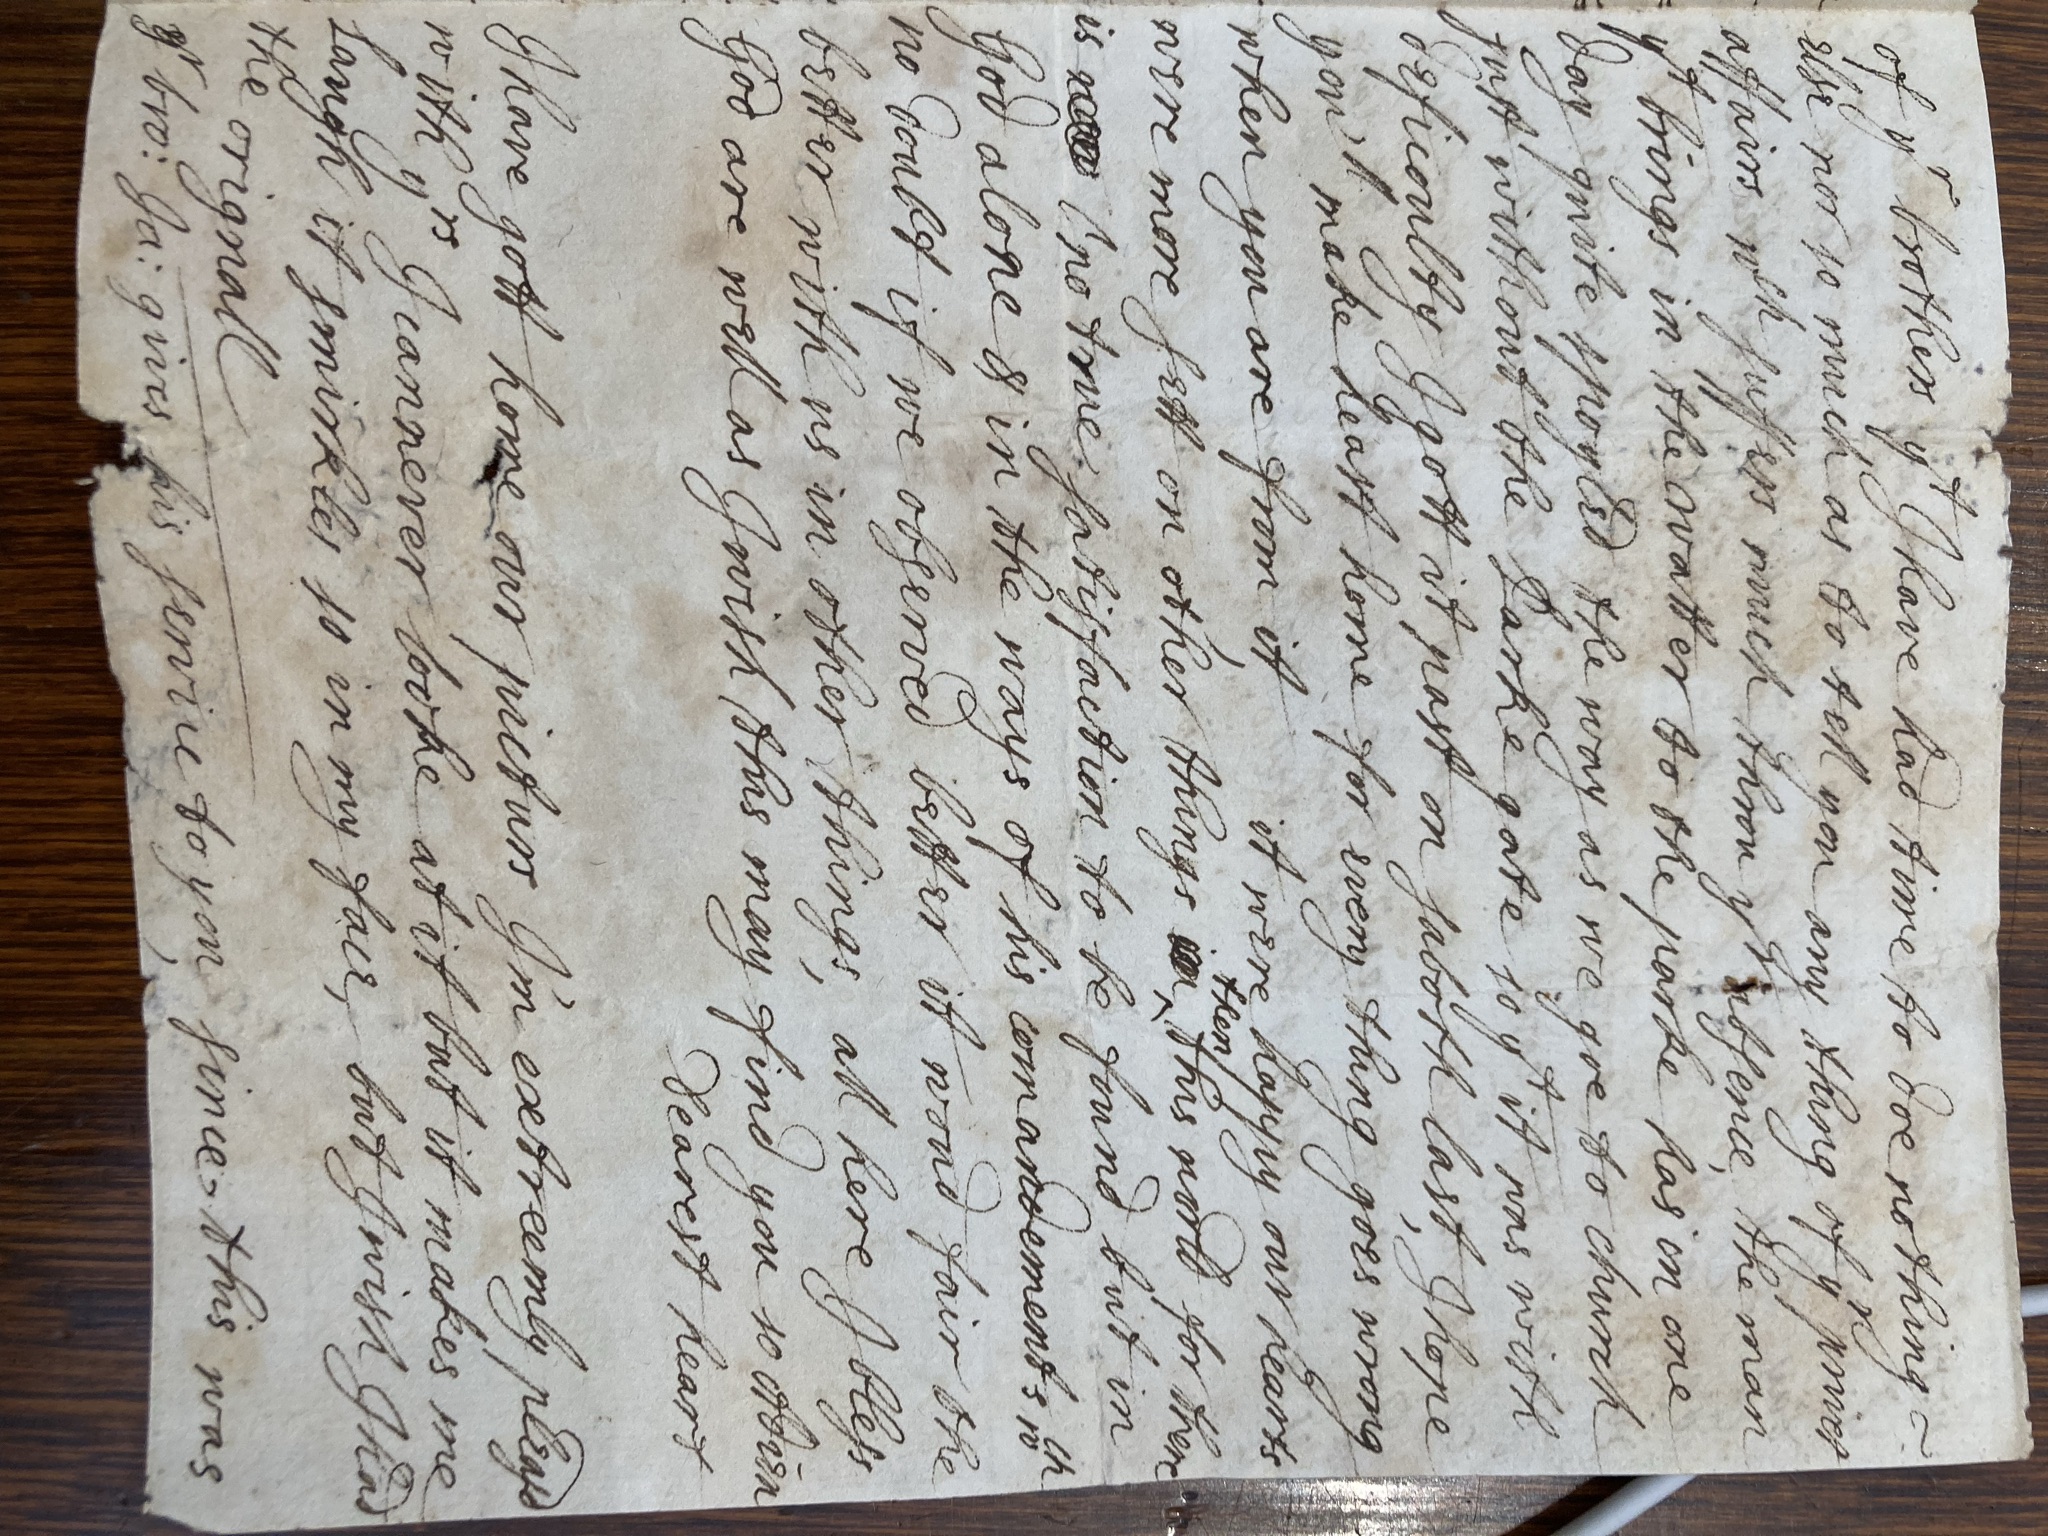 of yr brothers yt I have had time to doe nothing
else nor so much as to tell you any thing of yr privet
affairs wch suffers much throu yr absence, the man
yt brings in the watter to the parke has in one
day quite spoyled the way as we goe to church
just without the Parke gate so yt it was with
deficoulty I gott it past on saboth last, I hope
you'll make heast home for every thing goes wrong
when you are from it, it were happy our hearts
were more sett on other things then this world for there
is no true satisfaction to be found but in
God alone & in the ways of his comandements wch
no doubt if we observed better it woud fair the
better with us in other things, all here I bless
God are well as I wish this may find you so Adieu
Dearest heart
I have gott home our picturs I'm extreemly pleasd
with yrs I cannever looke at it but it makes me
laugh it smirkles so in my face, but I wish I had
the orignall
yr bro: Ja: gives his service to you, since this was